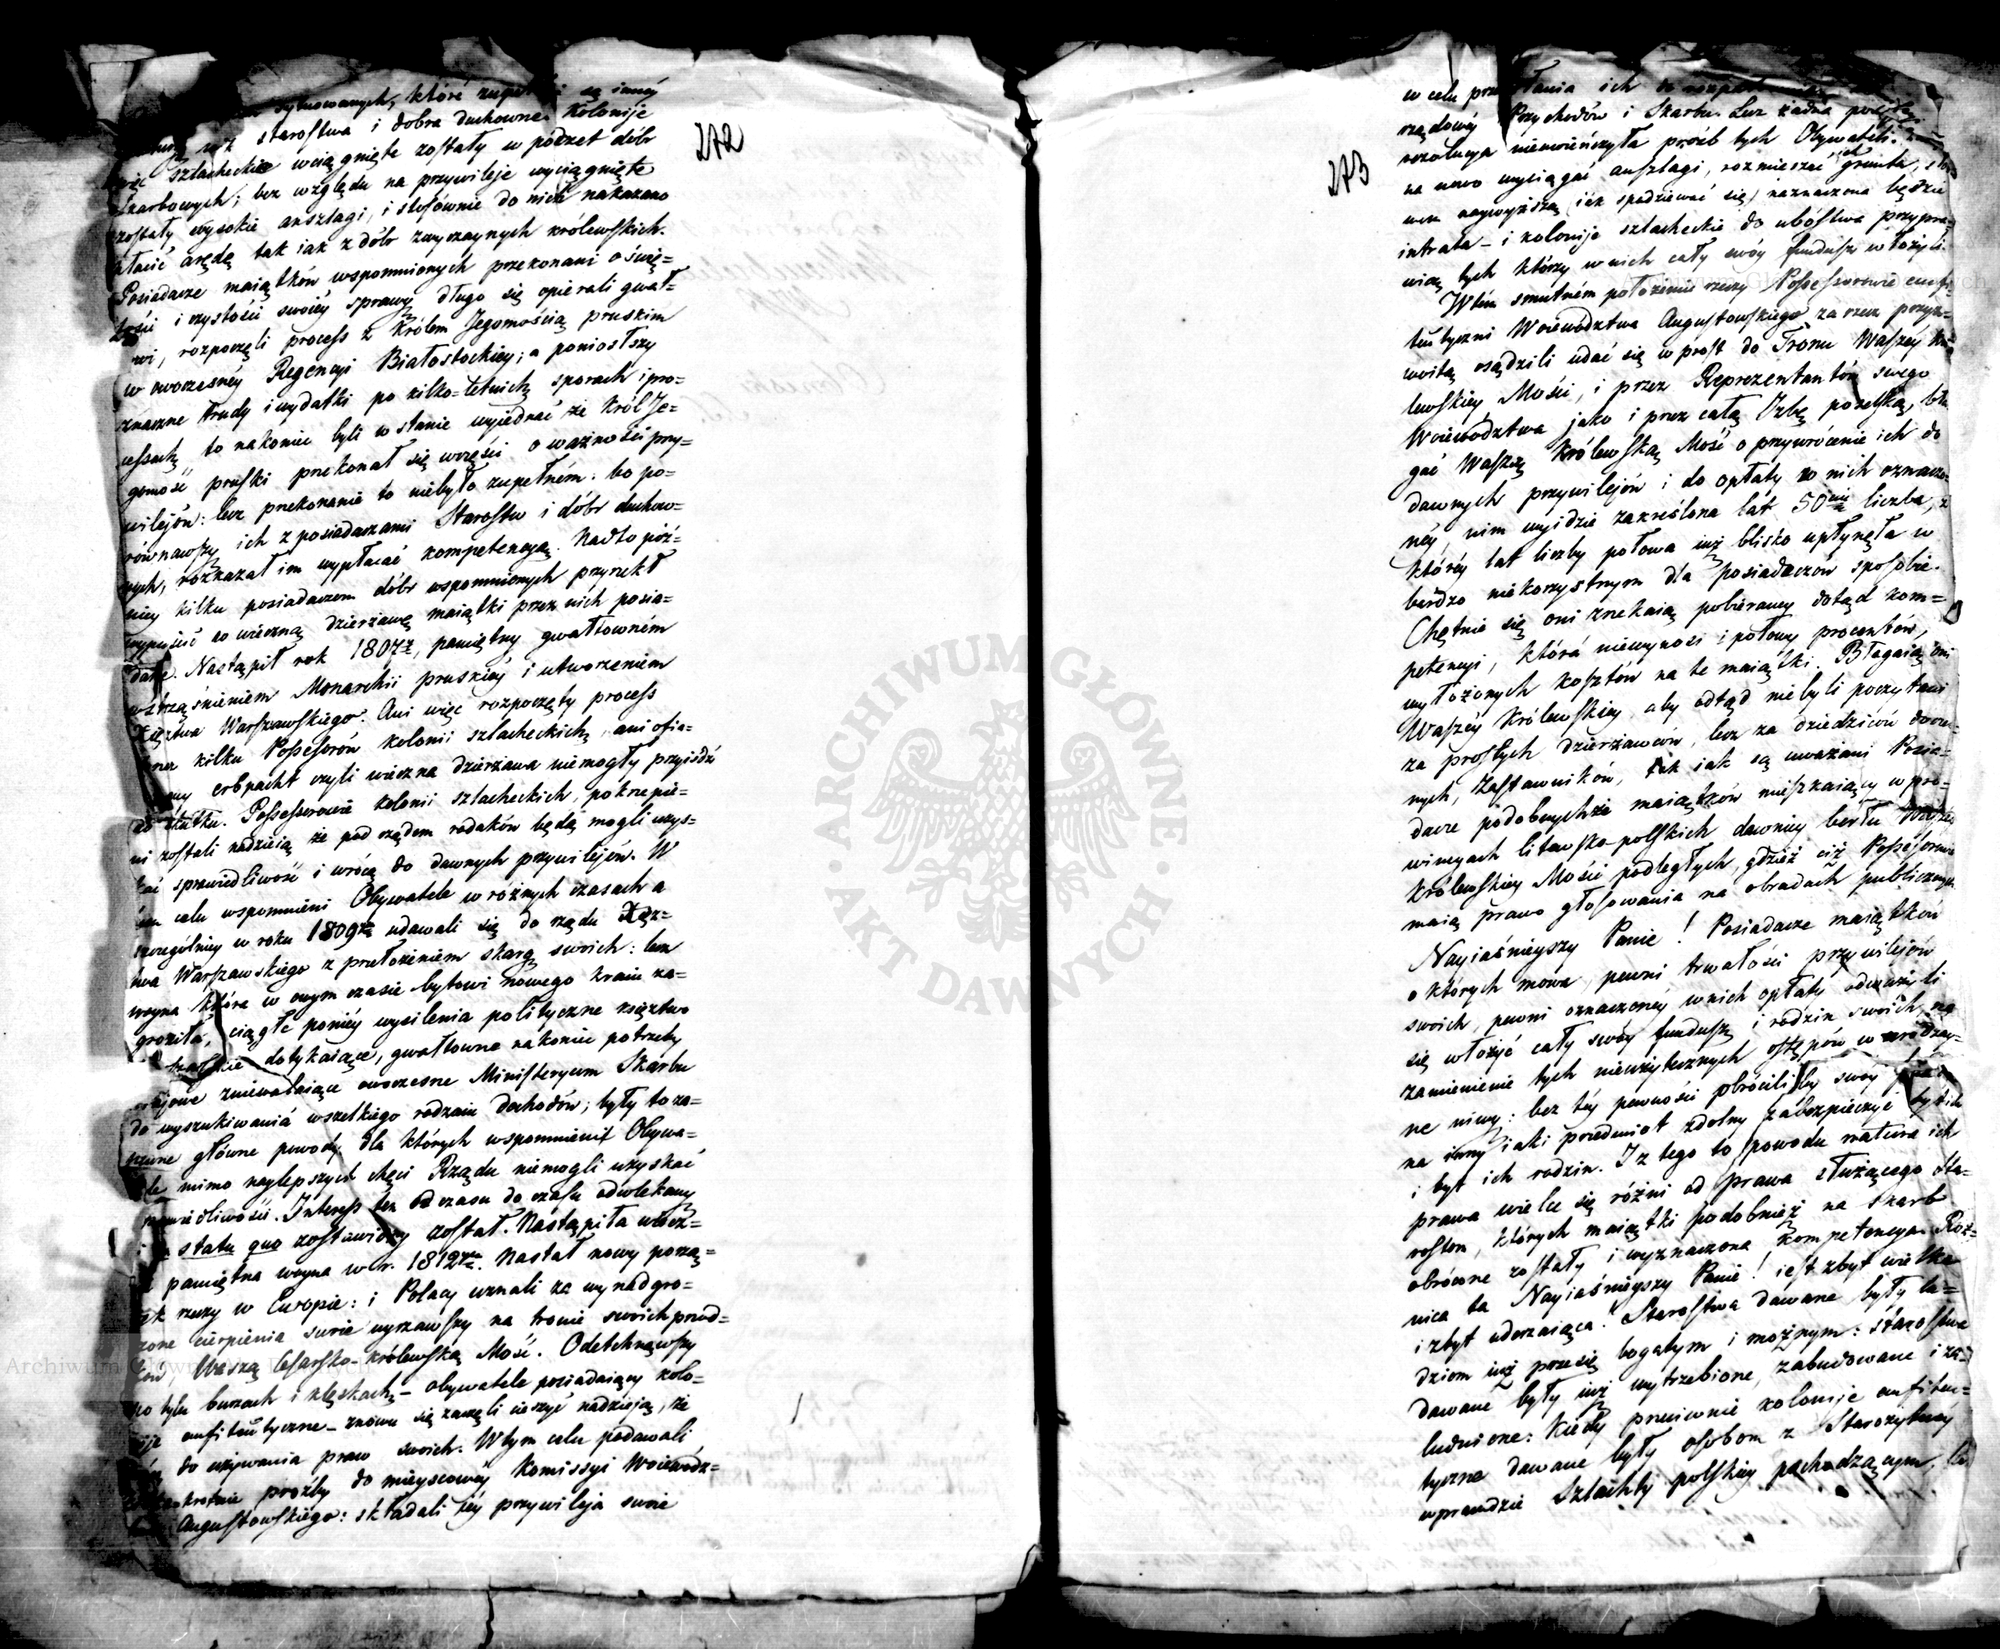 sytuowanych, które są innéy
starostwa i dobra duchowne. Kolonije
więc szlacheckie wciągnięte zostały w poczet dóbr
skarbowych; bez względu na przywileje wyciągnięte
zostały wysokie anszlagi, i stosównie do nich nakazano
płacić arędę tak jak z dóbr zwyczaynych królewskich.
Posiadacze maiątków wspomnionych przekonani o świę=
tości i czystości swoiéy sprawy długo się opierali gwał=
wi, rozpoczęli process z Królem Jegomością pruskim
w owoczesnéy Regencyi Białostockiey; a poniosłszy
znaczne trudy i wydatki po kilko=letnich sporach i pro=
cessach, to nakoniec byli w stanie wyjednać że Król Je=
gomość pruski przekonał się wczęści o ważności przy=
wilejów: lecz przekonanie to niebyło zupełném: bo po=
równawszy ich z posiadaczami Starostw i dóbr duchow=
nych, rozkazał im wypłacać kompetencyą. Nadto póź=
niey kilku posiadaczom dóbr wspomnionych przyrzekł
wypuścić w wieczną dzierżawę maiątki przez nich posia=
dane. Nastąpił rok 1807., pamiętny gwałtowném
wstrząśnieniem Monarchii pruskiéy i utworzeniem
Xięztwa Warszawskiego. Ani więc rozpoczęty process
przez kilku Possessorów kolonii szlacheckich, ani ofia=
erbpacht czyli wieczna dzierżawa niemogły przyiśdź
do skutku. Possessorowie kolonii szlacheckich, pokrzepie=
ni zostali nadzieią że pod rządem rodaków będą mogli uzys=
kać sprawiedliwość i wrócą do dawnych przywilejów. W
celu wspomnieni Obywatele w różnych czasach a
szczególniey w roku 1809 udawali się do rządu Xięz=
twa Warszawskiego z przełożeniem skarg swoich: lecz
woyna która w owym czasie bytowi nowego kraiu za=
groziła, ciągłe poniéy wysilenia polityczne xięztwo
dotykaiące, gwałtowne nakoniec potrzeby
zniewalaiące owoczesne Ministeryum Skarbu
do wyszukiwania wszelkiego rodzaiu dochodów; były to za=
pewne główne powody dla których wspomnieni Obywa=
tele mimo naylepszych chęci Rządu niemogli uzyskać
sprawiedliwości. Interess ten od czasu do czasu odwlekany
statu quo zostawiony został. Nastąpiła wresz=
pamiętna woyna w r. 1812. Nastał nowy porzą=
dek rzeczy w Europie: i Polacy uznali za wynadgro=
dzone cierpienia swoie uyrzawszy na tronie swoich przod=
ków, Waszą Cesarsko-królewską Mość. Odetchnąwszy
po tylu burzach i klęskach – obywatele posiadaiący kolo=
nije emfiteutyczne – znowu się zaczęli cieszyć nadzieją, że
do używania praw swoich. W tym celu podawali
prośby do mieyscowéy Kommissyi Woiewódz=
Augustowskiego: składali jéy przywileja swoie
272
273
w celu przesłania ich do
rządowéy Przychodów i Skarbu. Lecz żadna
rezolucya nieuwieńczyła próśb tych Obywateli.
na nowo wyciągać anszlagi, rozmierzać ich grunta,
wem naywyższa (jak spodziewać się) naznaczona będzie
intrata – i kolonije szlacheckie do ubóstwa przypra=
wią tych którzy w nich cały swóy fundusz włożyli.
W tém smutném położeniu rzeczy Possessorowie emfi=
teutyczni Województwa Augustowskiego za rzecz przyz=
woitą osądzili udać się wprost do Tronu Waszéy Kró=
lewskiéy Mości, i przez Reprezentantów swego
Województwa jako i przez całą Izbę poselską, bła=
gać Waszą Królewską Mość o przywrócenie ich do
dawnych przywilejów i do opłaty w nich oznaczo=
néy, nim wyidzie zakreślona lat 50 liczba, z
któréy lat liczby połowa już blisko upłynęła w
bardzo niekorzystnym dla posiadaczów sposobie.
Chętnie się oni zrzekaią pobieraney dotąd kom=
petencyi, która niewynosi i połowy procentów,
wyłożonych kosztów na te maiątki. Błagaią oni
Waszéy Królewskiéy, aby odtąd niebyli poczytani
za prostych dzierżawców, lecz za dziedziców dowo=
nych, Zastawników, tak jak są uważani Posia=
dacze podobnychże maiątków mieszkaiący w pro=
wincyach litewsko-polskich dawniéy berłu Waszéy
Królewskiéy Mości podległych, gdzież ciż Possessorowie
maią prawo głosowania na obradach publicznych.
Nayiaśnieyszy Panie! Posiadacze maiątków
o których mowa, pewni trwałości przywilejów
swoich, pewni oznaczonéy w nich opłaty odważyli
się włożyć cały swóy fundusz i rodzin swoich na
zamienienie tych nieużytecznych ostępów w urodzay=
ne niwy: bez téy pewności obróciliby swóy
na inny iaki przedmiot zdolny zabezpieczyć byt ich
i byt ich rodzin. I z tego to powodu natura ich
prawa wielce się różni od prawa służącego Sta=
rostom, których maiątki podobnież na Skarb
obrócone zostały i wyznaczona kompetencya. Róż=
nica ta Nayiaśnieyszy Panie! iest zbyt wielka
i zbyt uderzaiąca! Starostwa dawane były lu=
dziom już przez się bogatym i możnym: starostwa
dawane były już wytrzebione, zabudowane i za=
ludnione: Kiedy przeciwnie kolonije emfiteu=
tyczne dawane były osobom z Starożytnéy
wprawdzie Szlachty polskiéy pochodzącym,